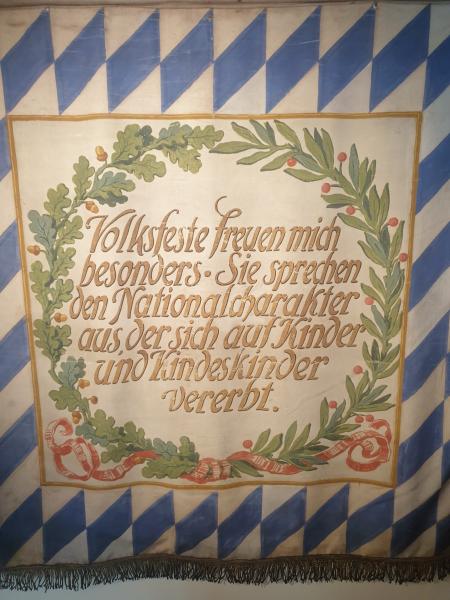 Volksfeste freuen mich
besonders. Sie sprechen
den Nationalcharakter
aus der sich auf Kinder
und Kindeskinder
vererbt.